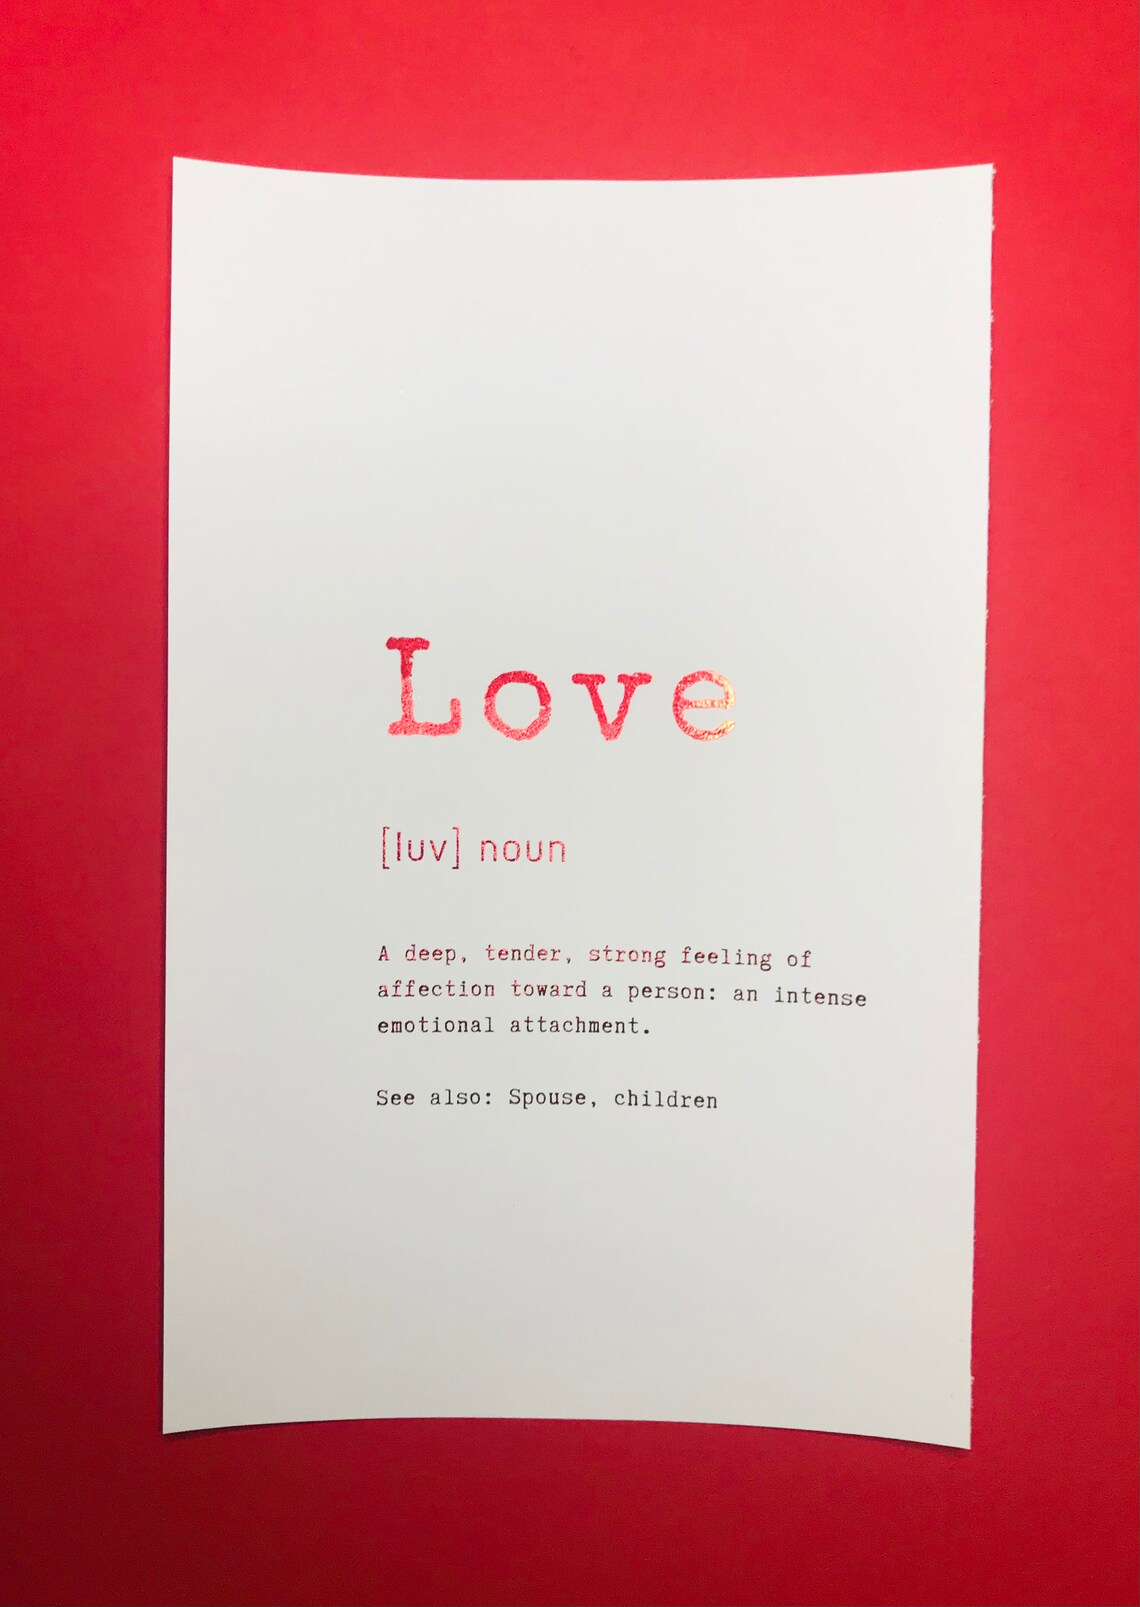 Love
[luv] noun
A deep, tender, strong feeling of
affection toward a person: an intense
emotional attachment.
See also: Spouse, children